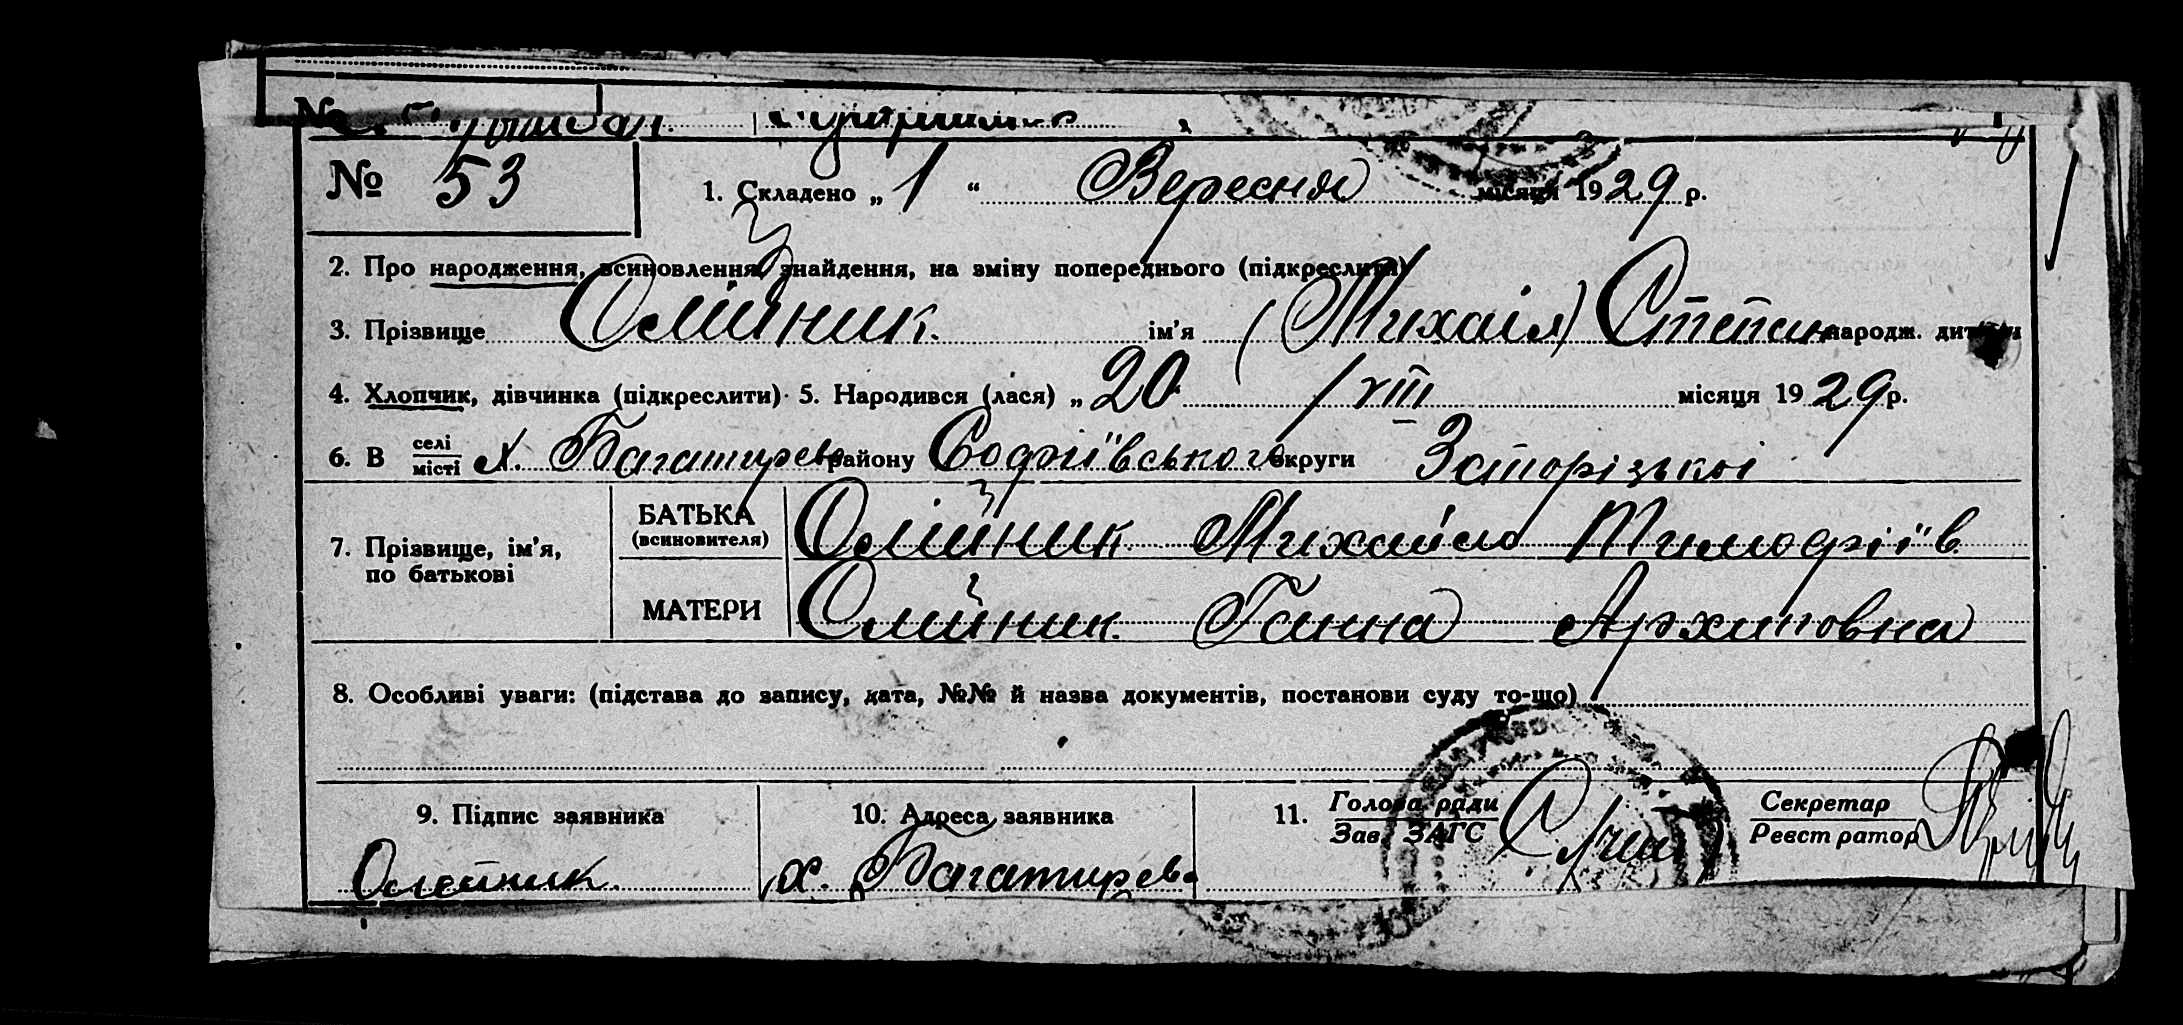 №
№ 53
1. Складено „ 1 “ Вересня місяця 1929 р.
2. Про народження, всиновлення, знайдення, на зміну попереднього (підкреслити)
3. Прізвище Олійник. ім'я (Михаіл) Степан народж. дитини
4. Хлопчик, дівчинка (підкреслити) 5. Народився (лася) „ 20 /VIII місяця 1929 р.
6. В селі місті х. Багатирево району Софиївського округи Запорізькоі
7. Прізвище, ім'я, по батькові
БАТЬКА (всиновителя) Олійник Михайло Тимофіїв.
МАТЕРИ Олійник Ганна Архиповна
8. Особливі уваги: (підстава до запису, дата, №№ й назва документів, постанови суду то-що)
9. Підпис заявника
10. Адреса заявника
11. Голова ради Зав. ЗАГС
Секретар Реєстратор
Олейник. х. Багатирево